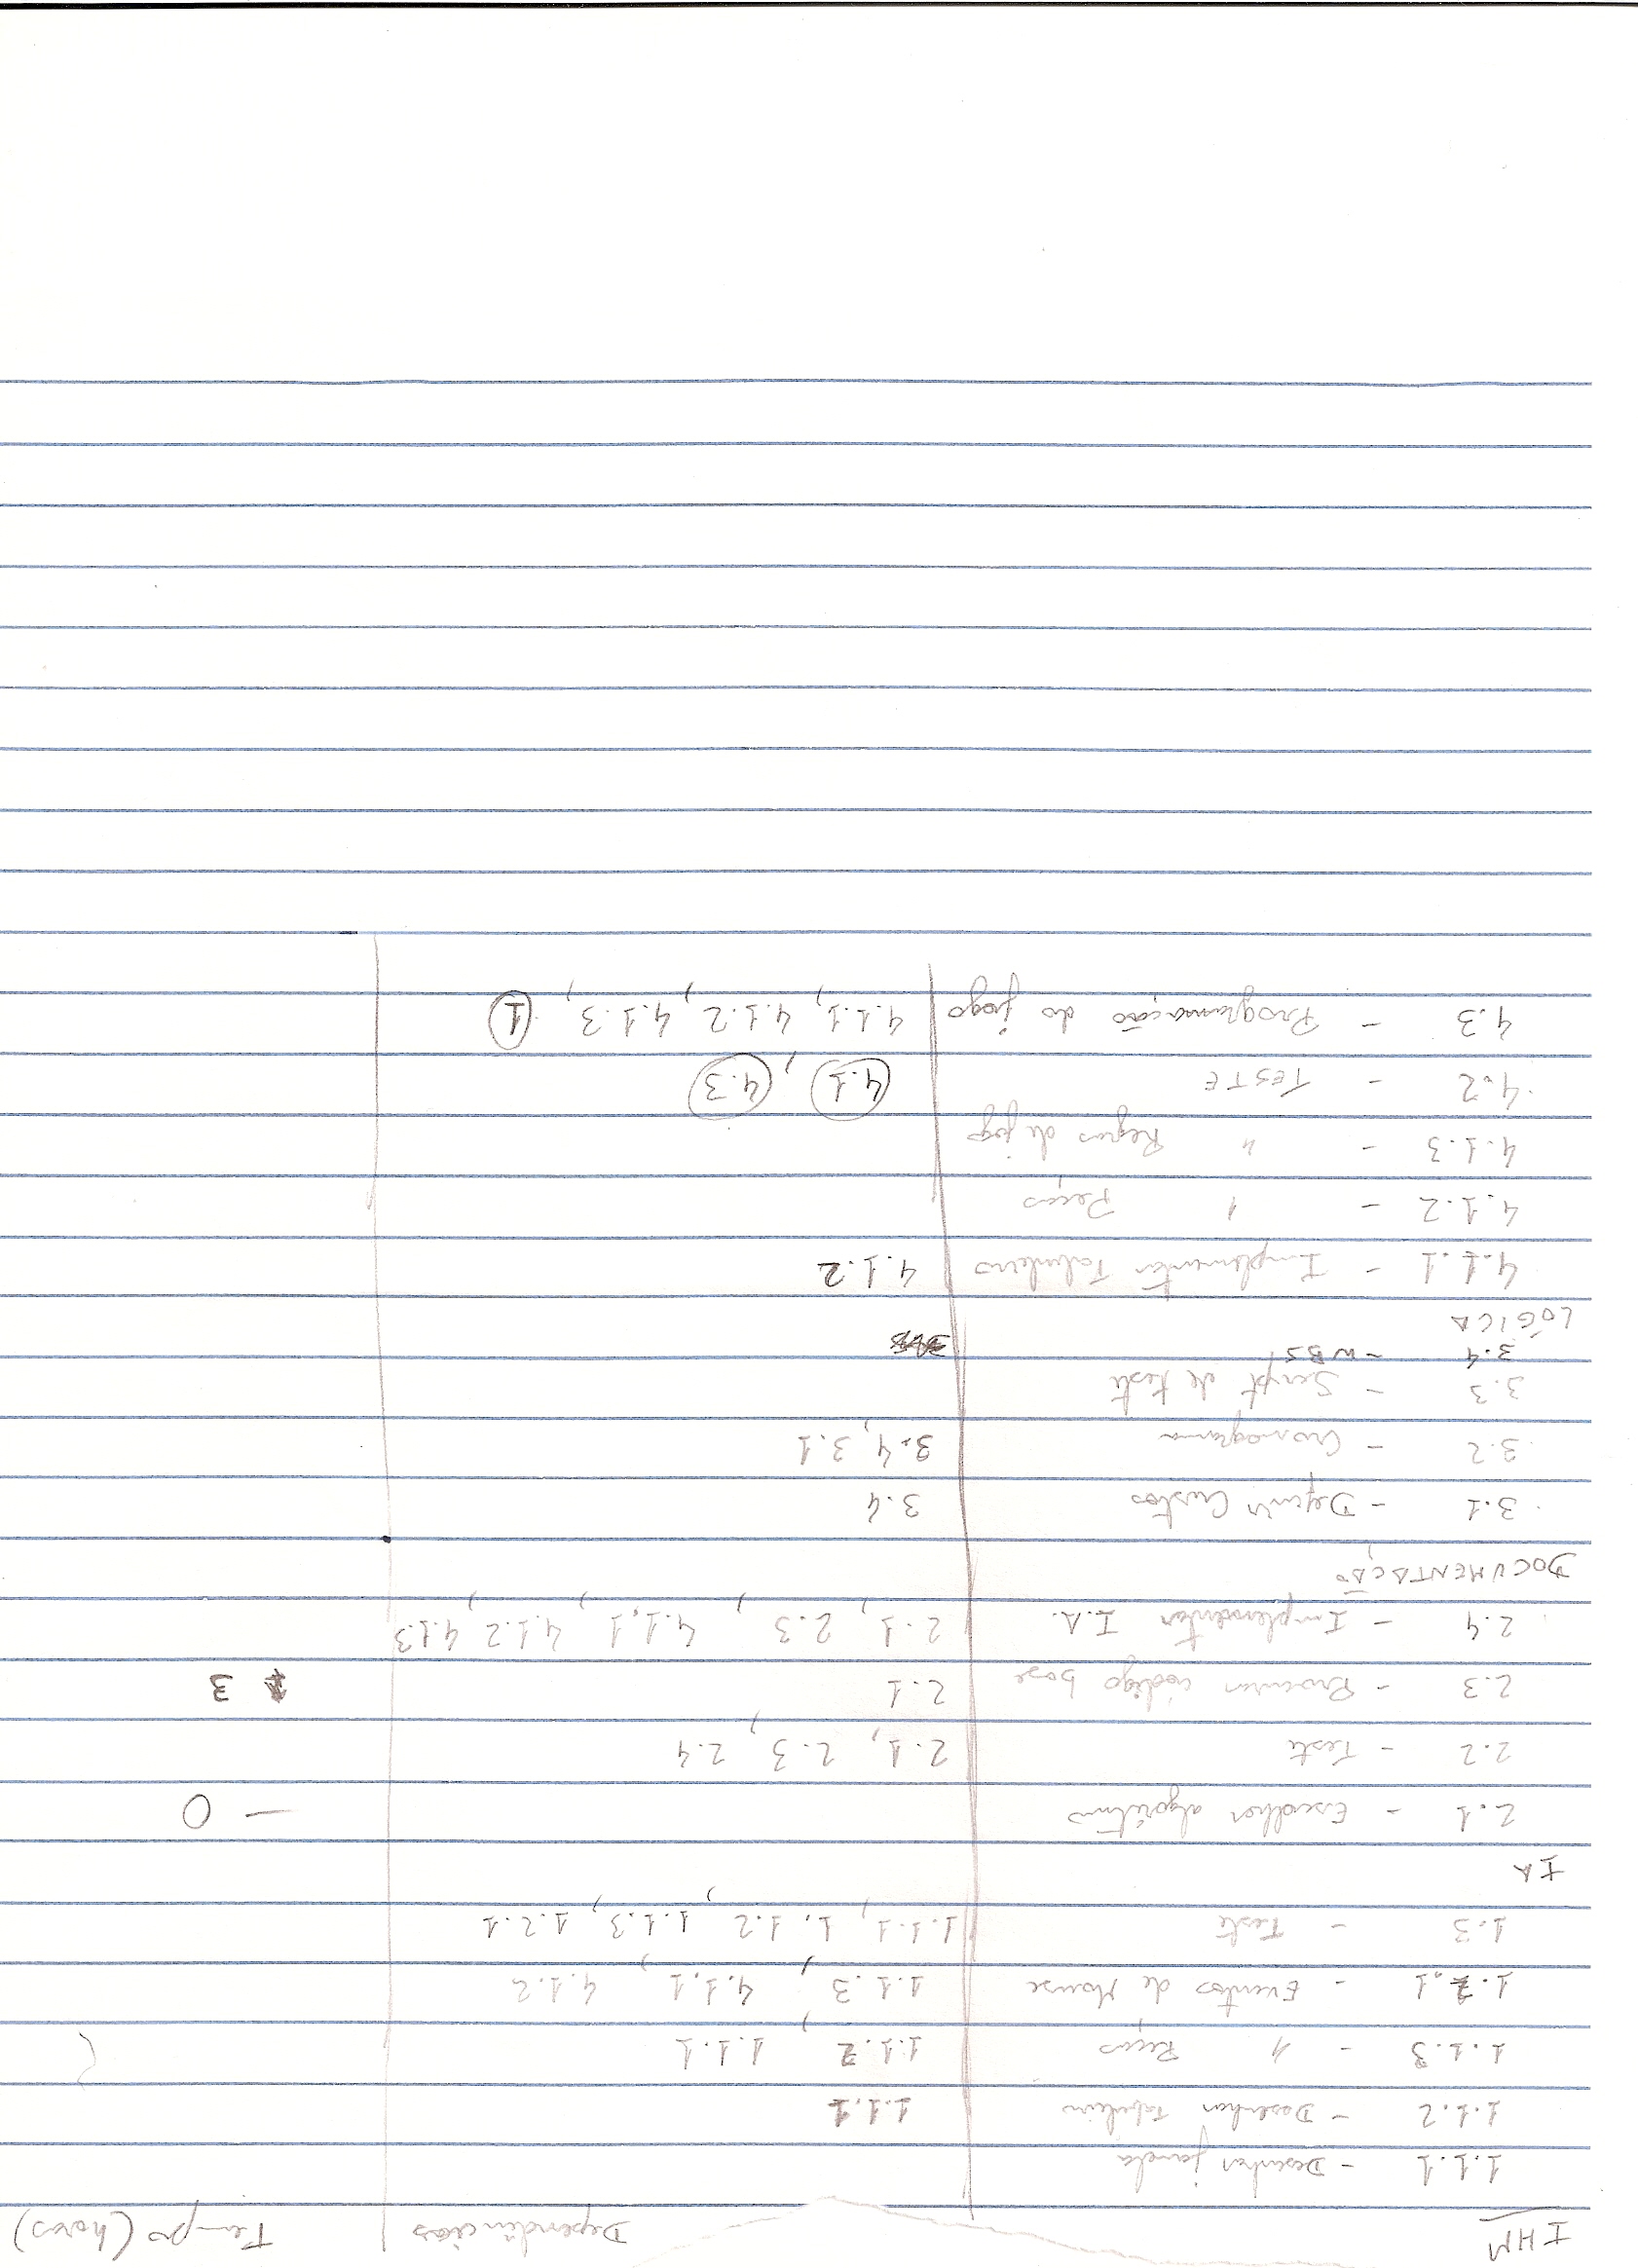 IHM Dependências Tempo (horas)
1.1.1 - Desenhar janela
1.1.2 - Desenhar tabuleiro 1.1.1
1.1.3 - " Peças 1.1.2, 1.1.1
1.2.1 - Eventos de Mouse 1.1.3, 4.1.1, 4.1.2
1.3 - Teste 1.1.1, 1.1.2, 1.1.3, 1.2.1
IA
2.1 - Escolher algoritmo — 0
2.2 - Teste 2.1, 2.3, 2.4
2.3 - Procurar código base 2.1 3
2.4 - Implementar I.A. 2.1, 2.3, 4.1.1, 4.1.2, 4.1.3
DOCUMENTAÇÃO
3.1 - Definir Custos 3.4
3.2 - Cronograma 3.4, 3.1
3.3 - Script de teste
3.4 - WBS
LÓGICA
4.1.1 - Implementar Tabuleiro 4.1.2
4.1.2 - " Peças
4.1.3 - " Regras de jogo
4.2 - TESTE 4.1, 4.3
4.3 - Programação do jogo 4.1.1, 4.1.2, 4.1.3, 1